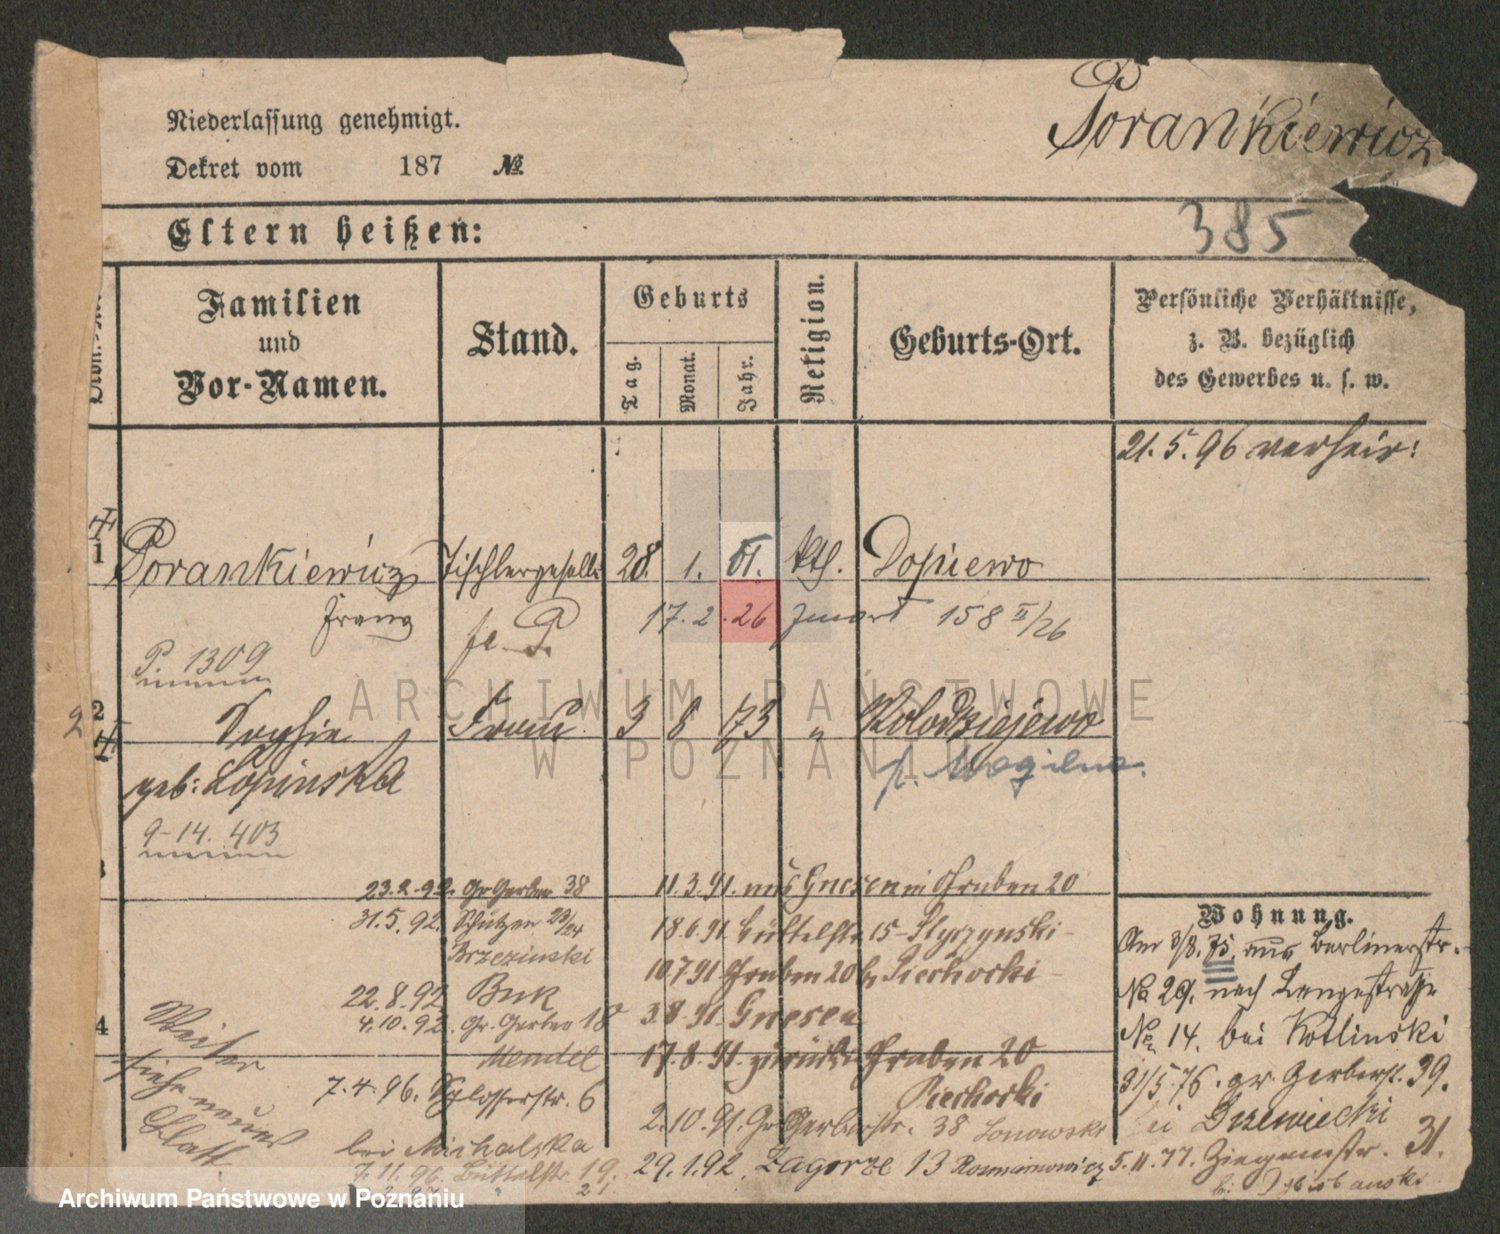 Niederlassung genehmigt.
Dekret vom 187 №
Porankiewicz
Eltern heißen:
385
Familien
und
Vor-Namen.
Stand.
Geburts
Tag.
Monat.
Jahr.
Religion.
Geburts-Ort.
Persönliche Verhältnisse,
z. B. bezüglich
des Gewerbes u. s. w.
21. 5. 96 verheir:
1 Porankiewicz Tischlergeselle 28. 1. 51. kth. Dopiewo
Franz
17. 2. 26 158 II/26
P. 1309
2 2 Sophie Frau 3 8 73 " Kolodziejewo
geb: Lopinska
p. Mogilno.
9-14. 403
23.2.92. Gr Gerber 38
31.5.92. Schützen 23/24
Brzezinski
22.8.92 Buk
4.10.92. Gr. Gerber 18
Mendel
7.4.96. Schlosserstr. 6
bei Michalska
7.11.96. Büttelstr. 19.
21
4
Weiter
siehe neues
Blatt.
11.3.91. aus Gnesen in Gruben 20
18.6.91. Büttelstr 15 - Styczynski -
10.7.91 Gruben 20 b/ Piechocki -
3.8.91. Gnesen
17.8.91. zurück Gruben 20
Piechocki
2.10.91. Gr Gerberstr. 38
29.1.92. Zagorze 13
Wohnung.
Am 3/8. 75. aus Berlinerstr.
No 29. nach Langestraße
No. 14. bei Kotlinski
31/5.76. gr. Gerberst. 39.
bei Drzewiecki
5.11.77. Ziegenstr. 31.
bei
ARCHIWUM PAŃSTWOWE
W POZNANIU
Archiwum Państwowe w Poznaniu